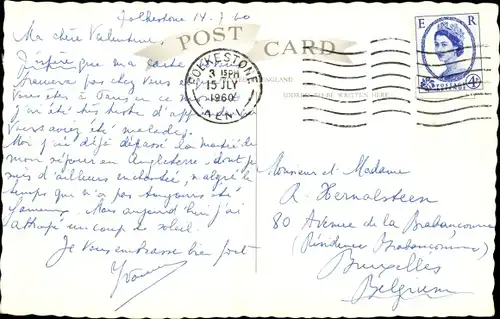 Folkestone 14.7.60
POST CARD
Ma chère Valentine,
J'espère que ma carte
trouvera pas chez vous
êtes à Jansen ce
j'ai été très triste d'app
vous avez été malade.
Moi j'ai déjà dépassé la moitié de
mon séjour en Angleterre, dont je
suis d'ailleurs enchantée, malgré le
temps qui n'a pas toujours été
fameux. Mais aujourd'hui j'ai
attrapé un coup de soleil.
Je vous embrasse bien fort
Yvonne
FOLKESTONE
3 15PM
15 JLY
1960
KENT
ENGLAND
ADDRESS TO BE WRITTEN HERE
E R
POSTAGE
4D
Monsieur et Madame
A. Hernalsteen
80 Avenue de la Brabançonne
(Résidence Brabançonne)
Bruxelles
Belgium